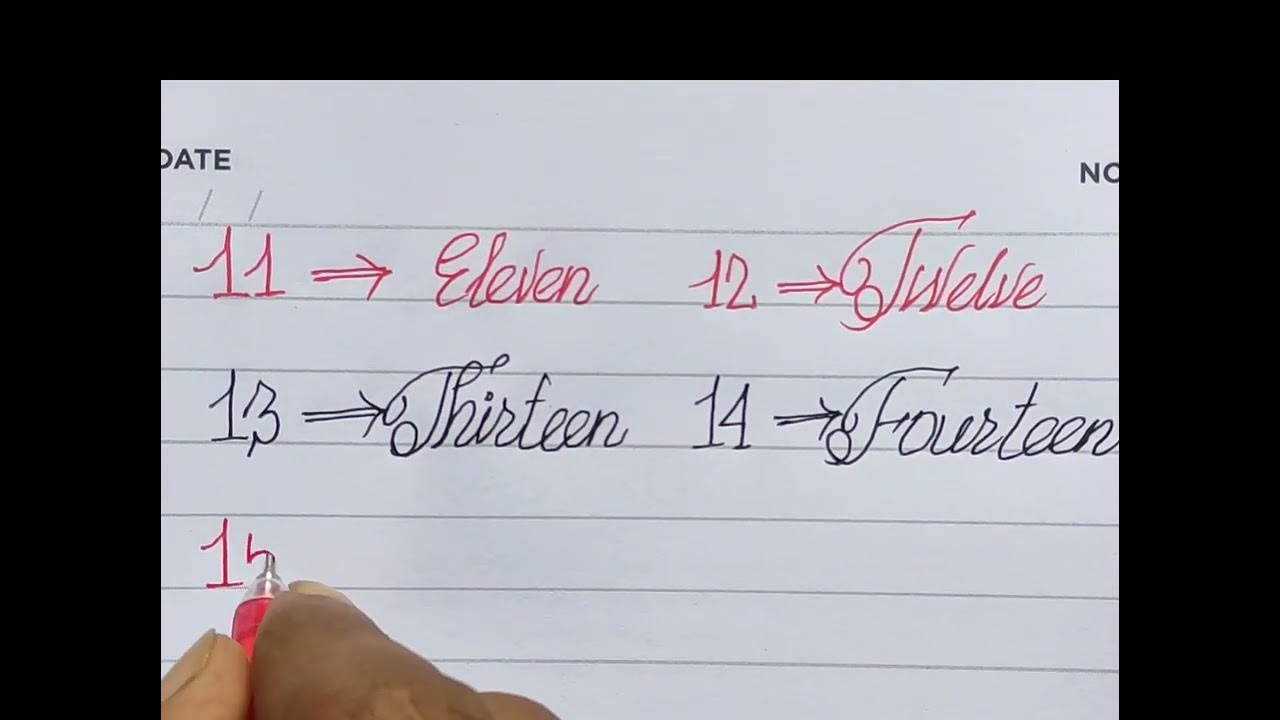 DATE
/ /
11 ⇒ Eleven 12 ⇒ Twelve
13 ⇒ Thirteen 14 ⇒ Fourteen
1